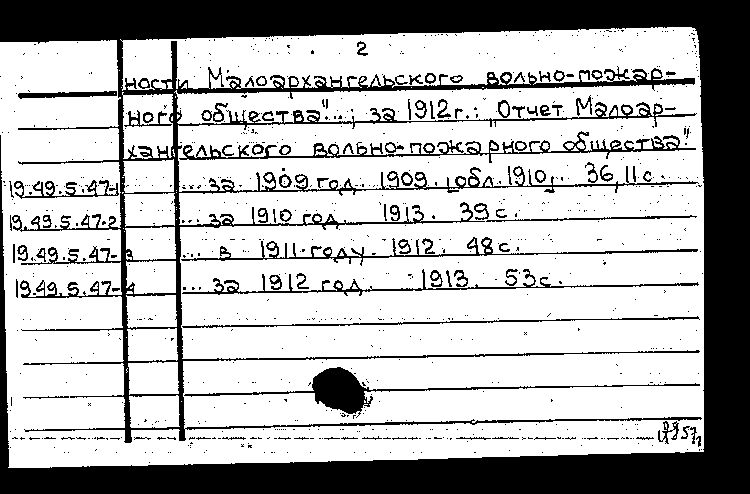 2
ности Малоархангельского вольно-пожар-
ного общества"...; за 1912 г.: „Отчет Малоар-
хангельского вольно-пожарного общества"
19.49.5.47-1 ... за 1909 год. 1909. [обл. 1910]. 36,11 с.
19.49.5.47-2 ... за 1910 год. 1913. 39 с.
19.49.5.47-3 ... в 1911 году. 1912. 48 с.
19.49.5.47-4 ... за 1912 год. 1913. 53 с.